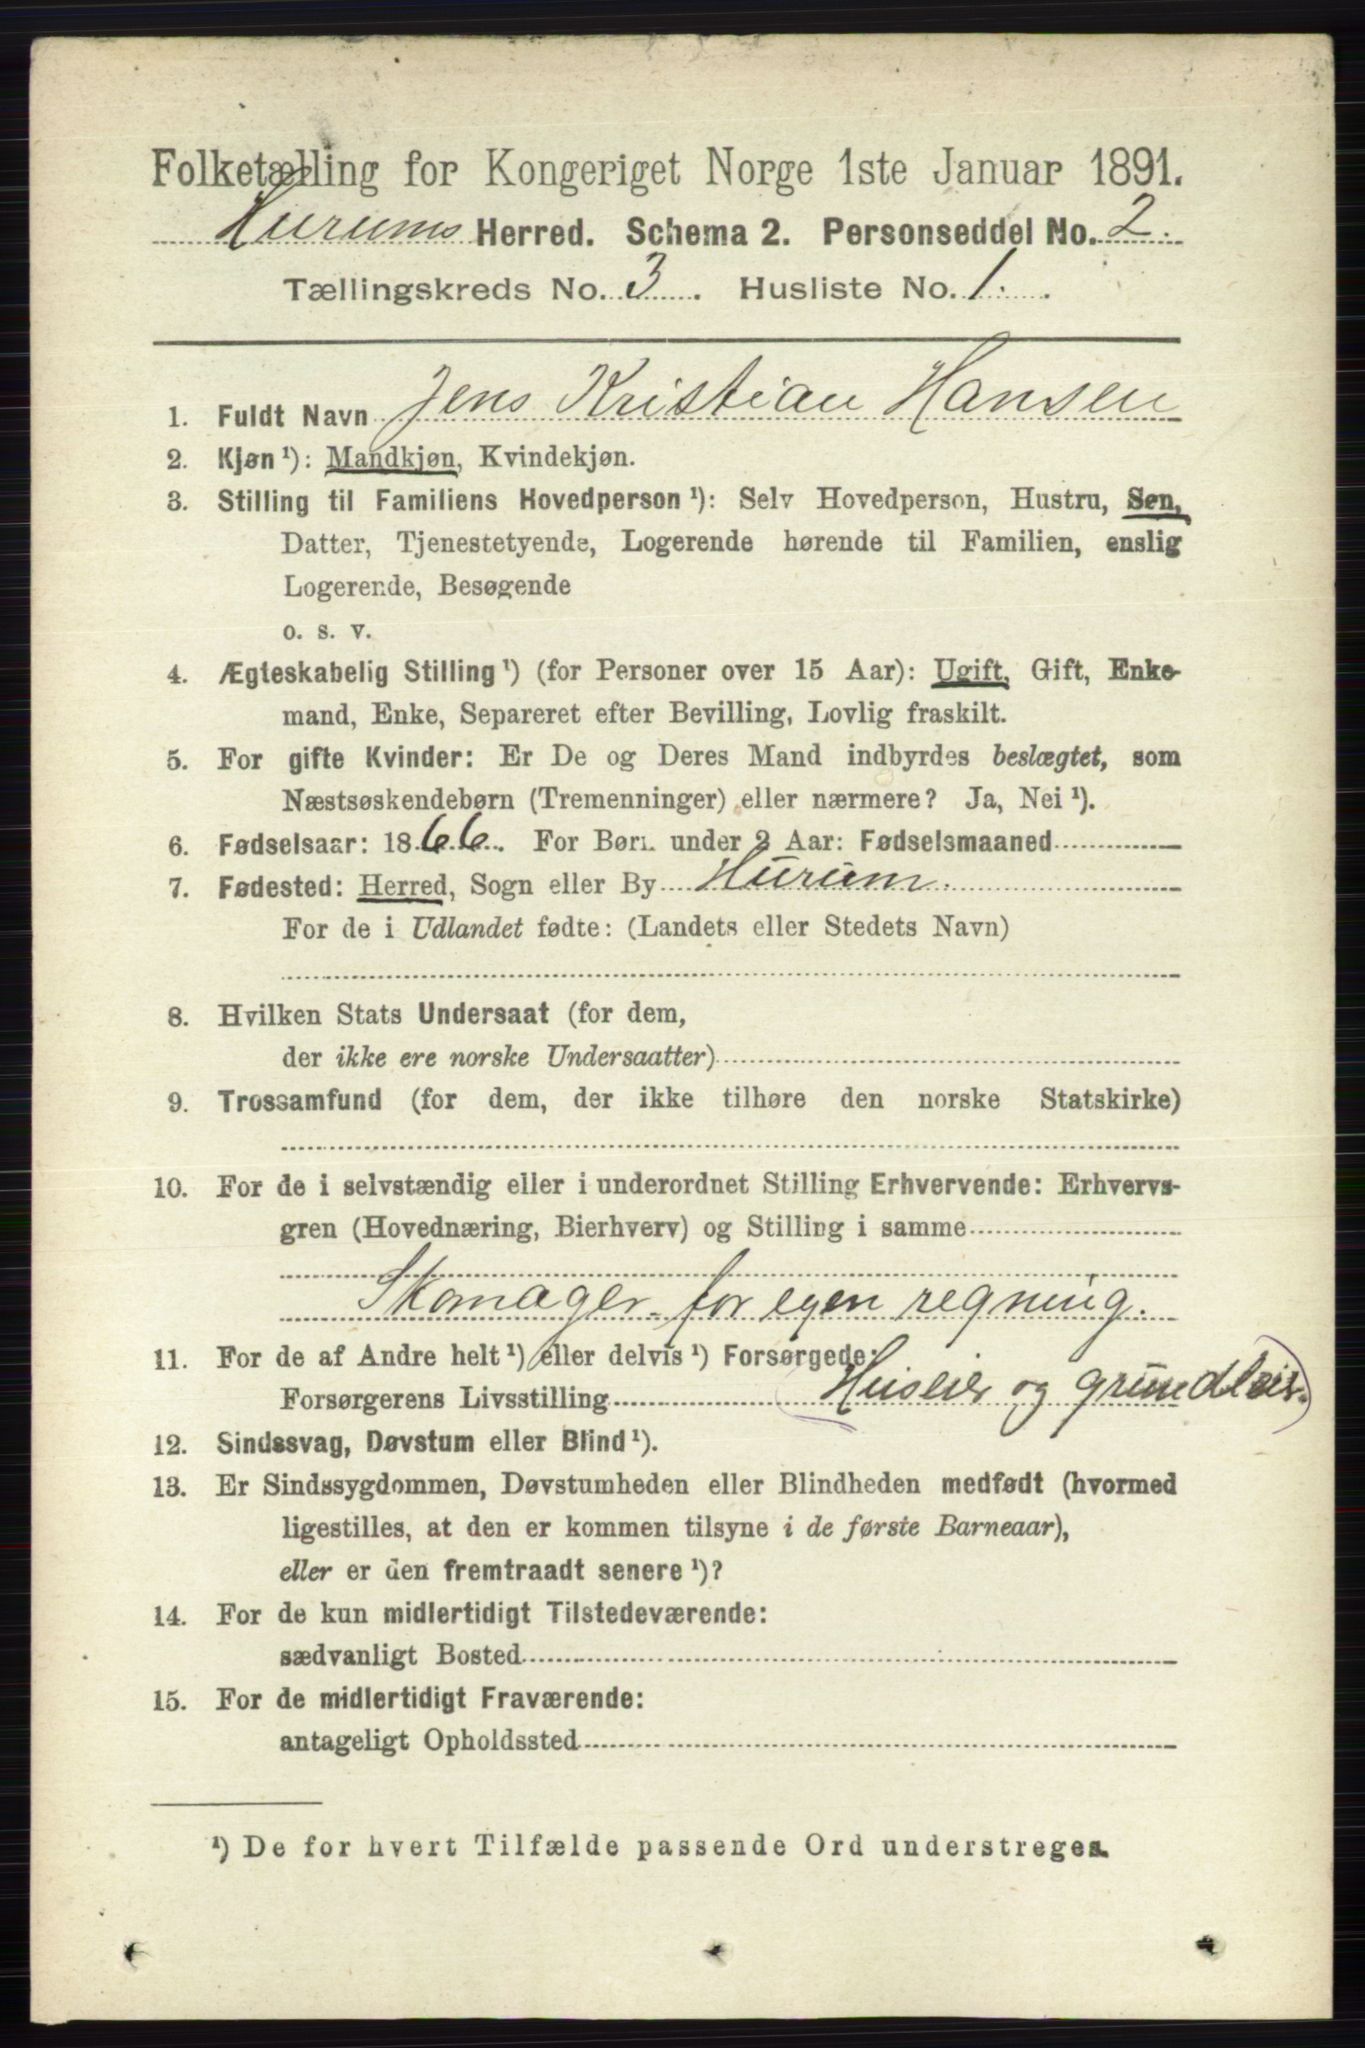 Folketælling for Kongeriget Norge 1ste Januar 1891.
Hurums Herred. Schema 2. Personseddel No. 2.
Tællingskreds No. 3. Husliste No. 1.
1. Fuldt Navn Jens Kristian Hansen
2. Kjøn ¹): Mandkjøn, Kvindekjøn.
3. Stilling til Familiens Hovedperson ¹): Selv Hovedperson, Hustru, Søn,
Datter, Tjenestetyende, Logerende hørende til Familien, enslig
Logerende, Besøgende
o. s. v.
4. Ægteskabelig Stilling ¹) (for Personer over 15 Aar): Ugift, Gift, Enke-
mand, Enke, Separeret efter Bevilling, Lovlig fraskilt.
5. For gifte Kvinder: Er De og Deres Mand indbyrdes beslægtet, som
Næstsøskendebørn (Tremenninger) eller nærmere? Ja, Nei ¹).
6. Fødselsaar: 1866. For Børn under 2 Aar: Fødselsmaaned
7. Fødested: Herred, Sogn eller By Hurum.
For de i Udlandet fødte: (Landets eller Stedets Navn)
8. Hvilken Stats Undersaat (for dem,
der ikke ere norske Undersaatter)
9. Trossamfund (for dem, der ikke tilhøre den norske Statskirke)
10. For de i selvstændig eller i underordnet Stilling Erhvervende: Erhvervs-
gren (Hovednæring, Bierhverv) og Stilling i samme
Skomager for egen regning.
11. For de af Andre helt ¹) eller delvis ¹) Forsørgede:
Forsørgerens Livsstilling (Huseier og grundleier.)
12. Sindssvag, Døvstum eller Blind ¹).
13. Er Sindssygdommen, Døvstumheden eller Blindheden medfødt (hvormed
ligestilles, at den er kommen tilsyne i de første Barneaar),
eller er den fremtraadt senere ¹)?
14. For de kun midlertidigt Tilstedeværende:
sædvanligt Bosted
15. For de midlertidigt Fraværende:
antageligt Opholdssted
¹) De for hvert Tilfælde passende Ord understreges.